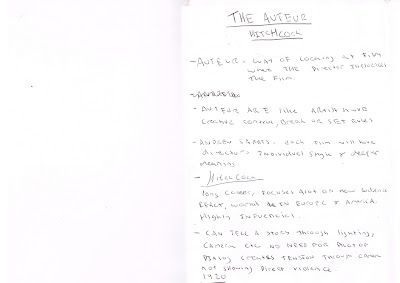 THE AUTEUR
HITCHCOCK
- AUTEUR - WAY OF LOOKING AT FILM
WHAT THE DIRECTOR INFLUENCES
THE FILM.
- AUTEUR ARE like ARTIST HAVE
CREATIVE CONTROL, BREAK OR SET RULES
- ANDREW SARRIS. each film will have
directors individual style & deeper
meaning
- HITCHCOCK
long career, focuses alot on how audience
REACT, WORKED IN EUROPE & AMERICA.
Highly INFLUENCIAL.
- CAN TELL A STORY through lighting,
CAMERA ETC NO NEED FOR
CREATES TENSION Through CAMERA
not showing DIRECT violence
1920